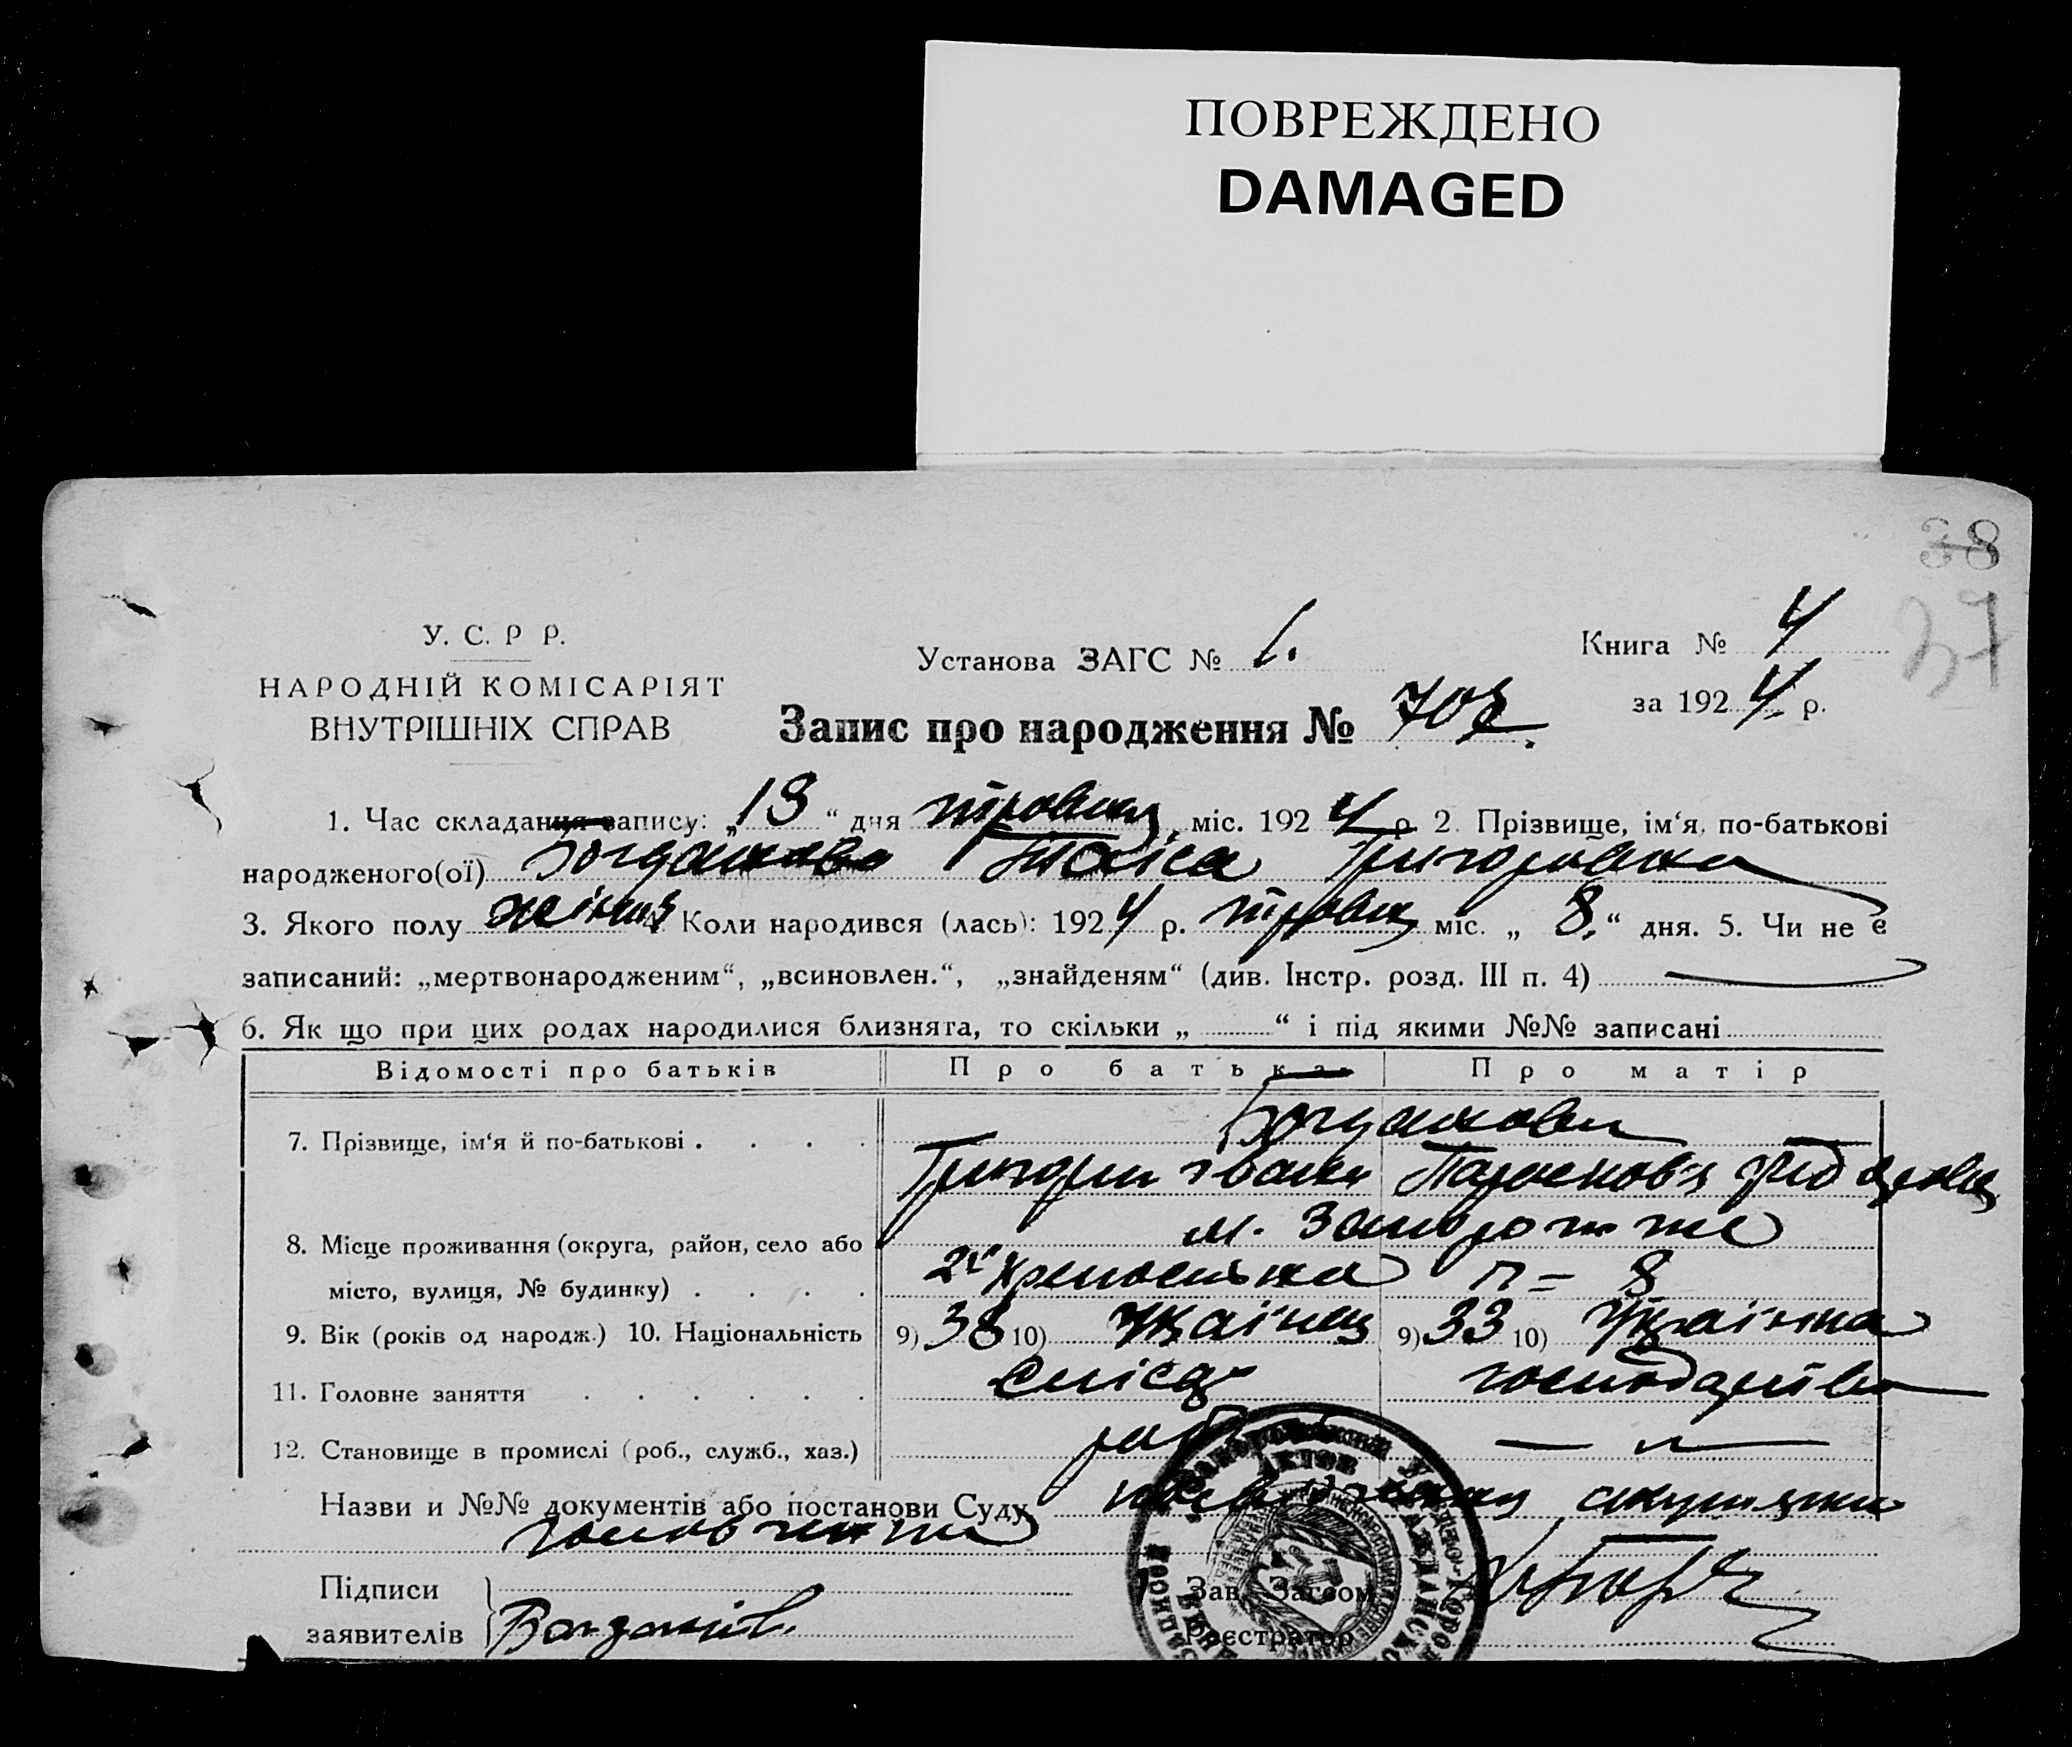 ПОВРЕЖДЕНО
DAMAGED
38
37
У. С. Р Р.
НАРОДНІЙ КОМІСАРІЯТ
ВНУТРІШНІХ СПРАВ
Установа ЗАГС № 1.
Книга № 4
за 1924 р.
Запис про народження №
1. Час складання запису: „13“ дня травня міс. 1924 р. 2. Прізвище, ім‘я, по-батькові
народженого(ої) Богданова Таіса Григоровна
3. Якого полу жіноч 4. Коли народився (лась): 1924 р. травн міс. „8.“ дня. 5. Чи не є
записаний: „мертвонародженим“, „всиновлен.“, „знайденям“ (див. Інстр. розд. III п. 4)
6. Як що при цих родах народилися близнята, то скільки „ “ і під якими №№ записані
Відомості про батьків Про батька Про матір
7. Прізвище, ім‘я й по-батькові . . . . Богданови
Григори Іванов
8. Місце проживання (округа, район, село або м. Запоріжже
місто, вулиця, № будинку) . . . . 8
9. Вік (років од народж.) 10. Національність 9) 38 10) Украінец 9) 33 10) Украінка
11. Головне заняття . . . . . . Слісар господарство
12. Становище в промислі (роб., служб., хаз.) роб — „ —
Назви и №№ документів або постанови Суду акушерки
Підписи
заявителів Богданов
Зав. Загсом
Реєстратор